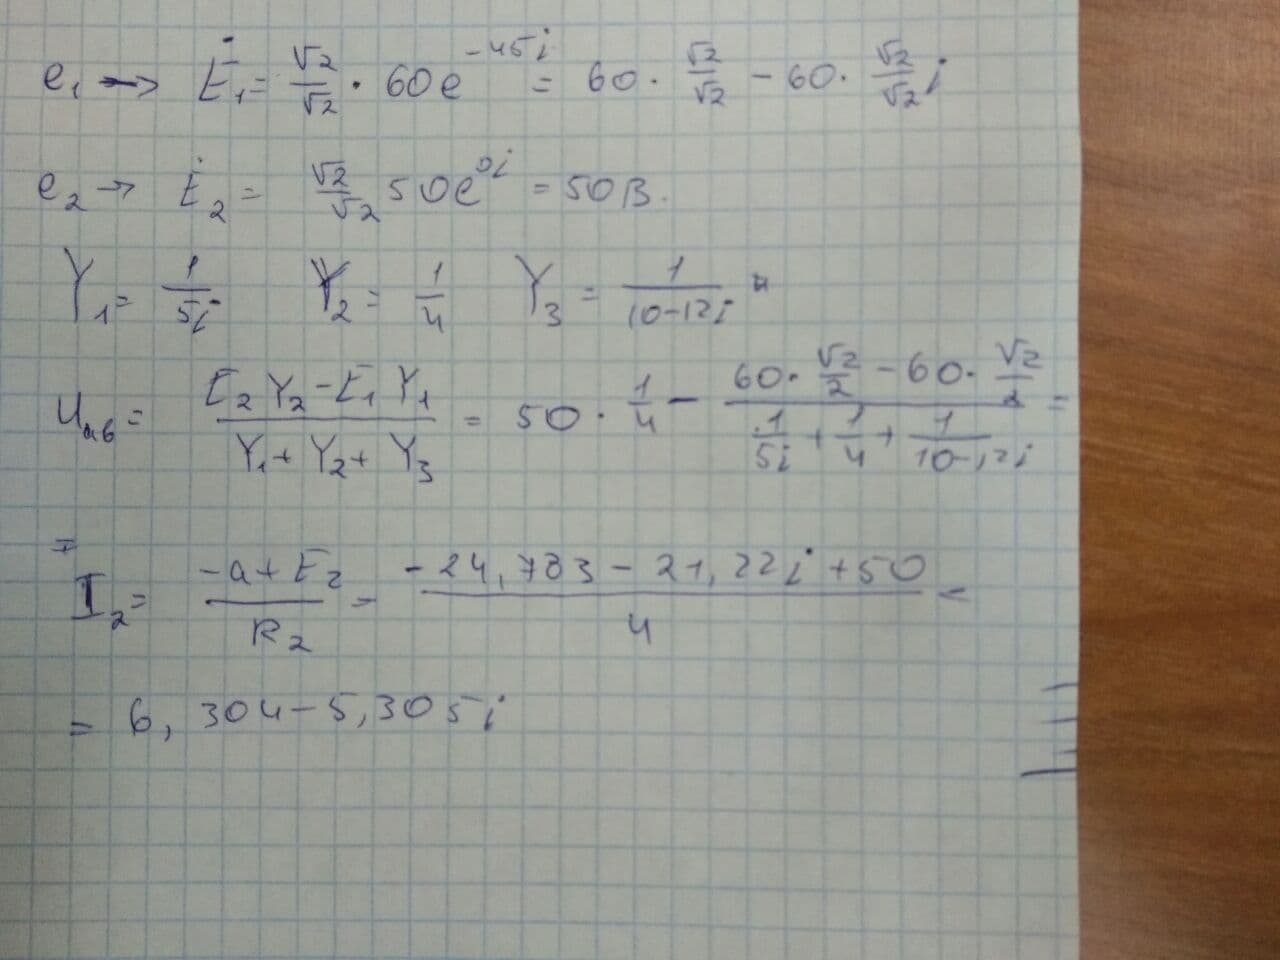 e₁ → Ė₁ = √2/√2 · 60e^(-45i) = 60 · √2/√2 - 60 · √2/√2 i
e₂ → Ė₂ = √2/√2 50e^(0i) = 50В.
Y₁ = 1/5i Y₂ = 1/4 Y₃ = 1/(10-12i)
U_ab = (E₂Y₂ - E₁Y₁)/(Y₁ + Y₂ + Y₃) = 50 · 1/4 - (60 · √2/2 - 60 · √2/2)/(1/5i + 1/4 + 1/(10-12i)) =
=
I₂ = (-a + E₂)/R₂ = (-24,783 - 21,22i + 50)/4 =
= 6,304 - 5,305i